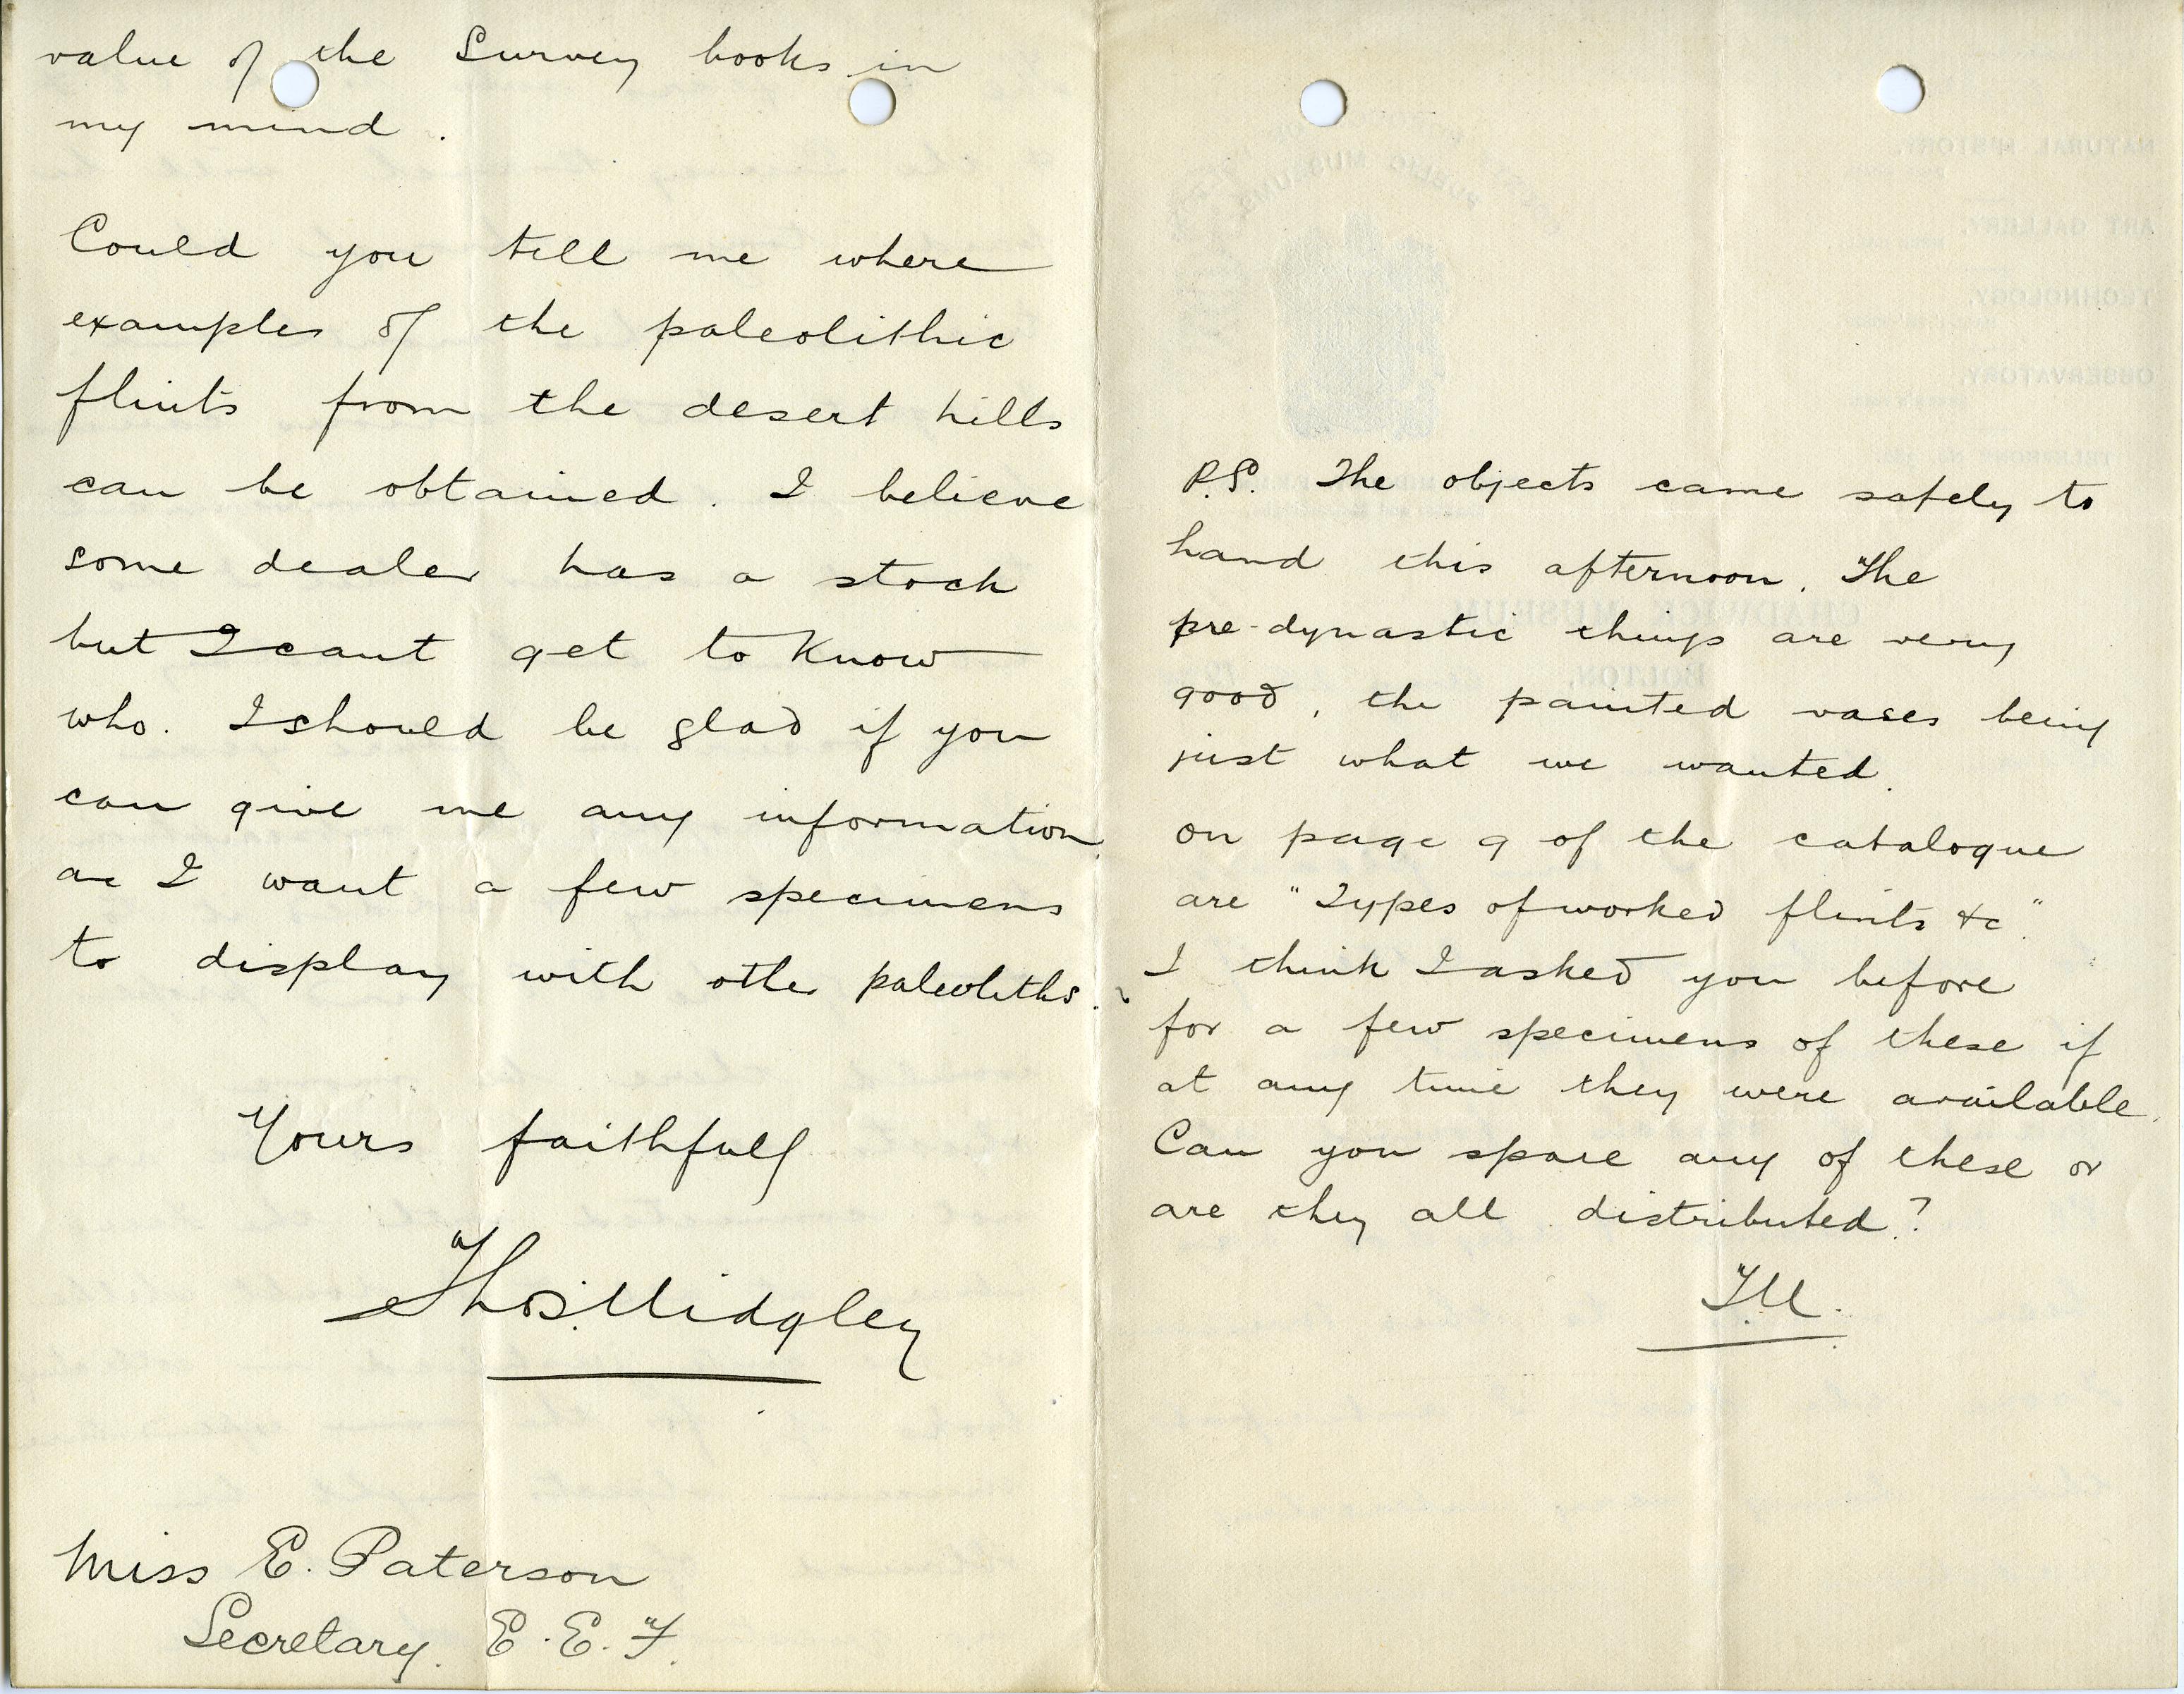 value of the Survey books in
my mind.
Could you tell me where
examples of the paleolithic
flints from the desert hills
can be obtained. I believe
some dealer has a stock
but I cant get to know
who. I should be glad if you
can give me any information
as I want a few specimens
to display with other paleoliths.
Yours faithfully
Thos. Midgley
Miss E. Paterson
Secretary. E.E.F.
P.S. The objects came safely to
hand this afternoon. The
pre-dynastic things are very
good, the painted vases being
just what we wanted.
on page 9 of the catalogue
are "Types of worked flints &c".
I think I asked you before
for a few specimens of these if
at any time they were available.
Can you spare any of these or
are they all distributed?
T.M.
NATURAL HISTORY.
ART GALLERY.
TECHNOLOGY
OBSERVATORY
PUBLIC MUSEUMS
CHADWICK MUSEUM
BOLTON,